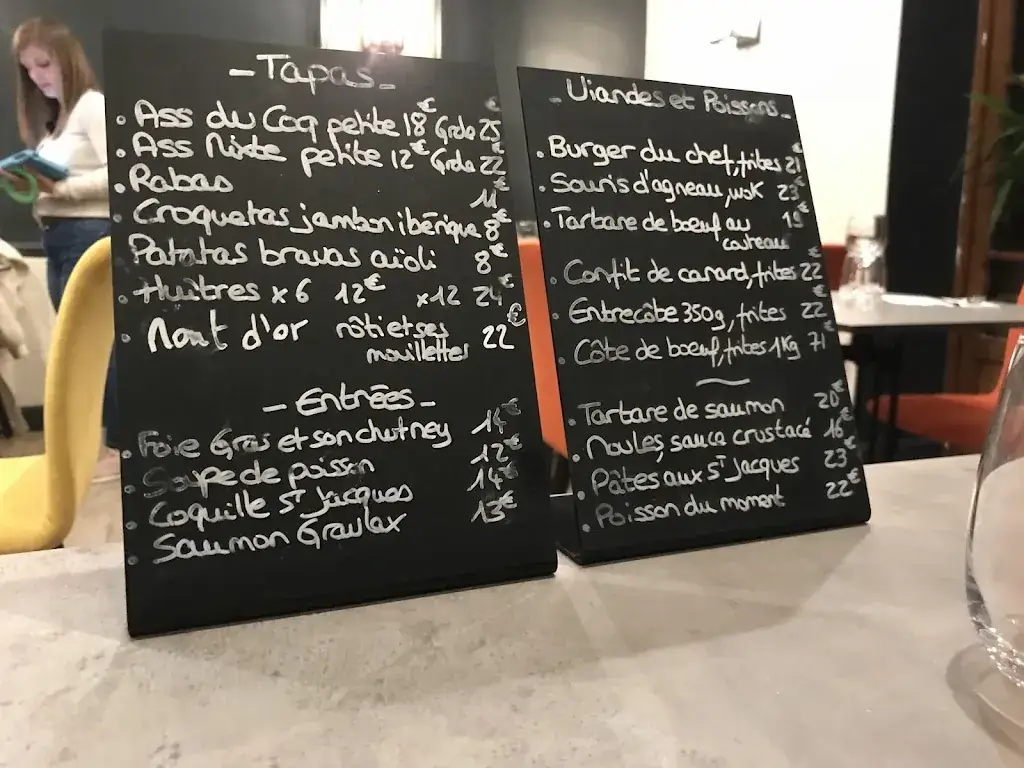 - Tapas -
. Ass du Coq petite 18€ Grde 25€
. Ass Mixte petite 12€ Grde 22
. Rabas 11€
. Croquetas jambon ibérique 8€
. Patatas bravas aïoli 8€
. Huîtres x6 12€ x12 24€
. Mont d'or rôti et ses 22€
mouillettes
- Entrées -
. Foie Gras et son chutney 14€
. Soupe de poisson 12€
. Coquille St Jacques 14€
. Saumon Gravlax 13€
- Viandes et Poissons -
. Burger du chef, frites 21€
. Souris d'agneau, wok 23€
. Tartare de boeuf au 19€
couteau
. Confit de canard, frites 22€
. Entrecôte 350g, frites 22€
. Côte de boeuf, frites 1Kg 71€
. Tartare de saumon 20€
. Moules, sauce crustacé 16€
. Pâtes aux St Jacques 23€
. Poisson du moment 22€